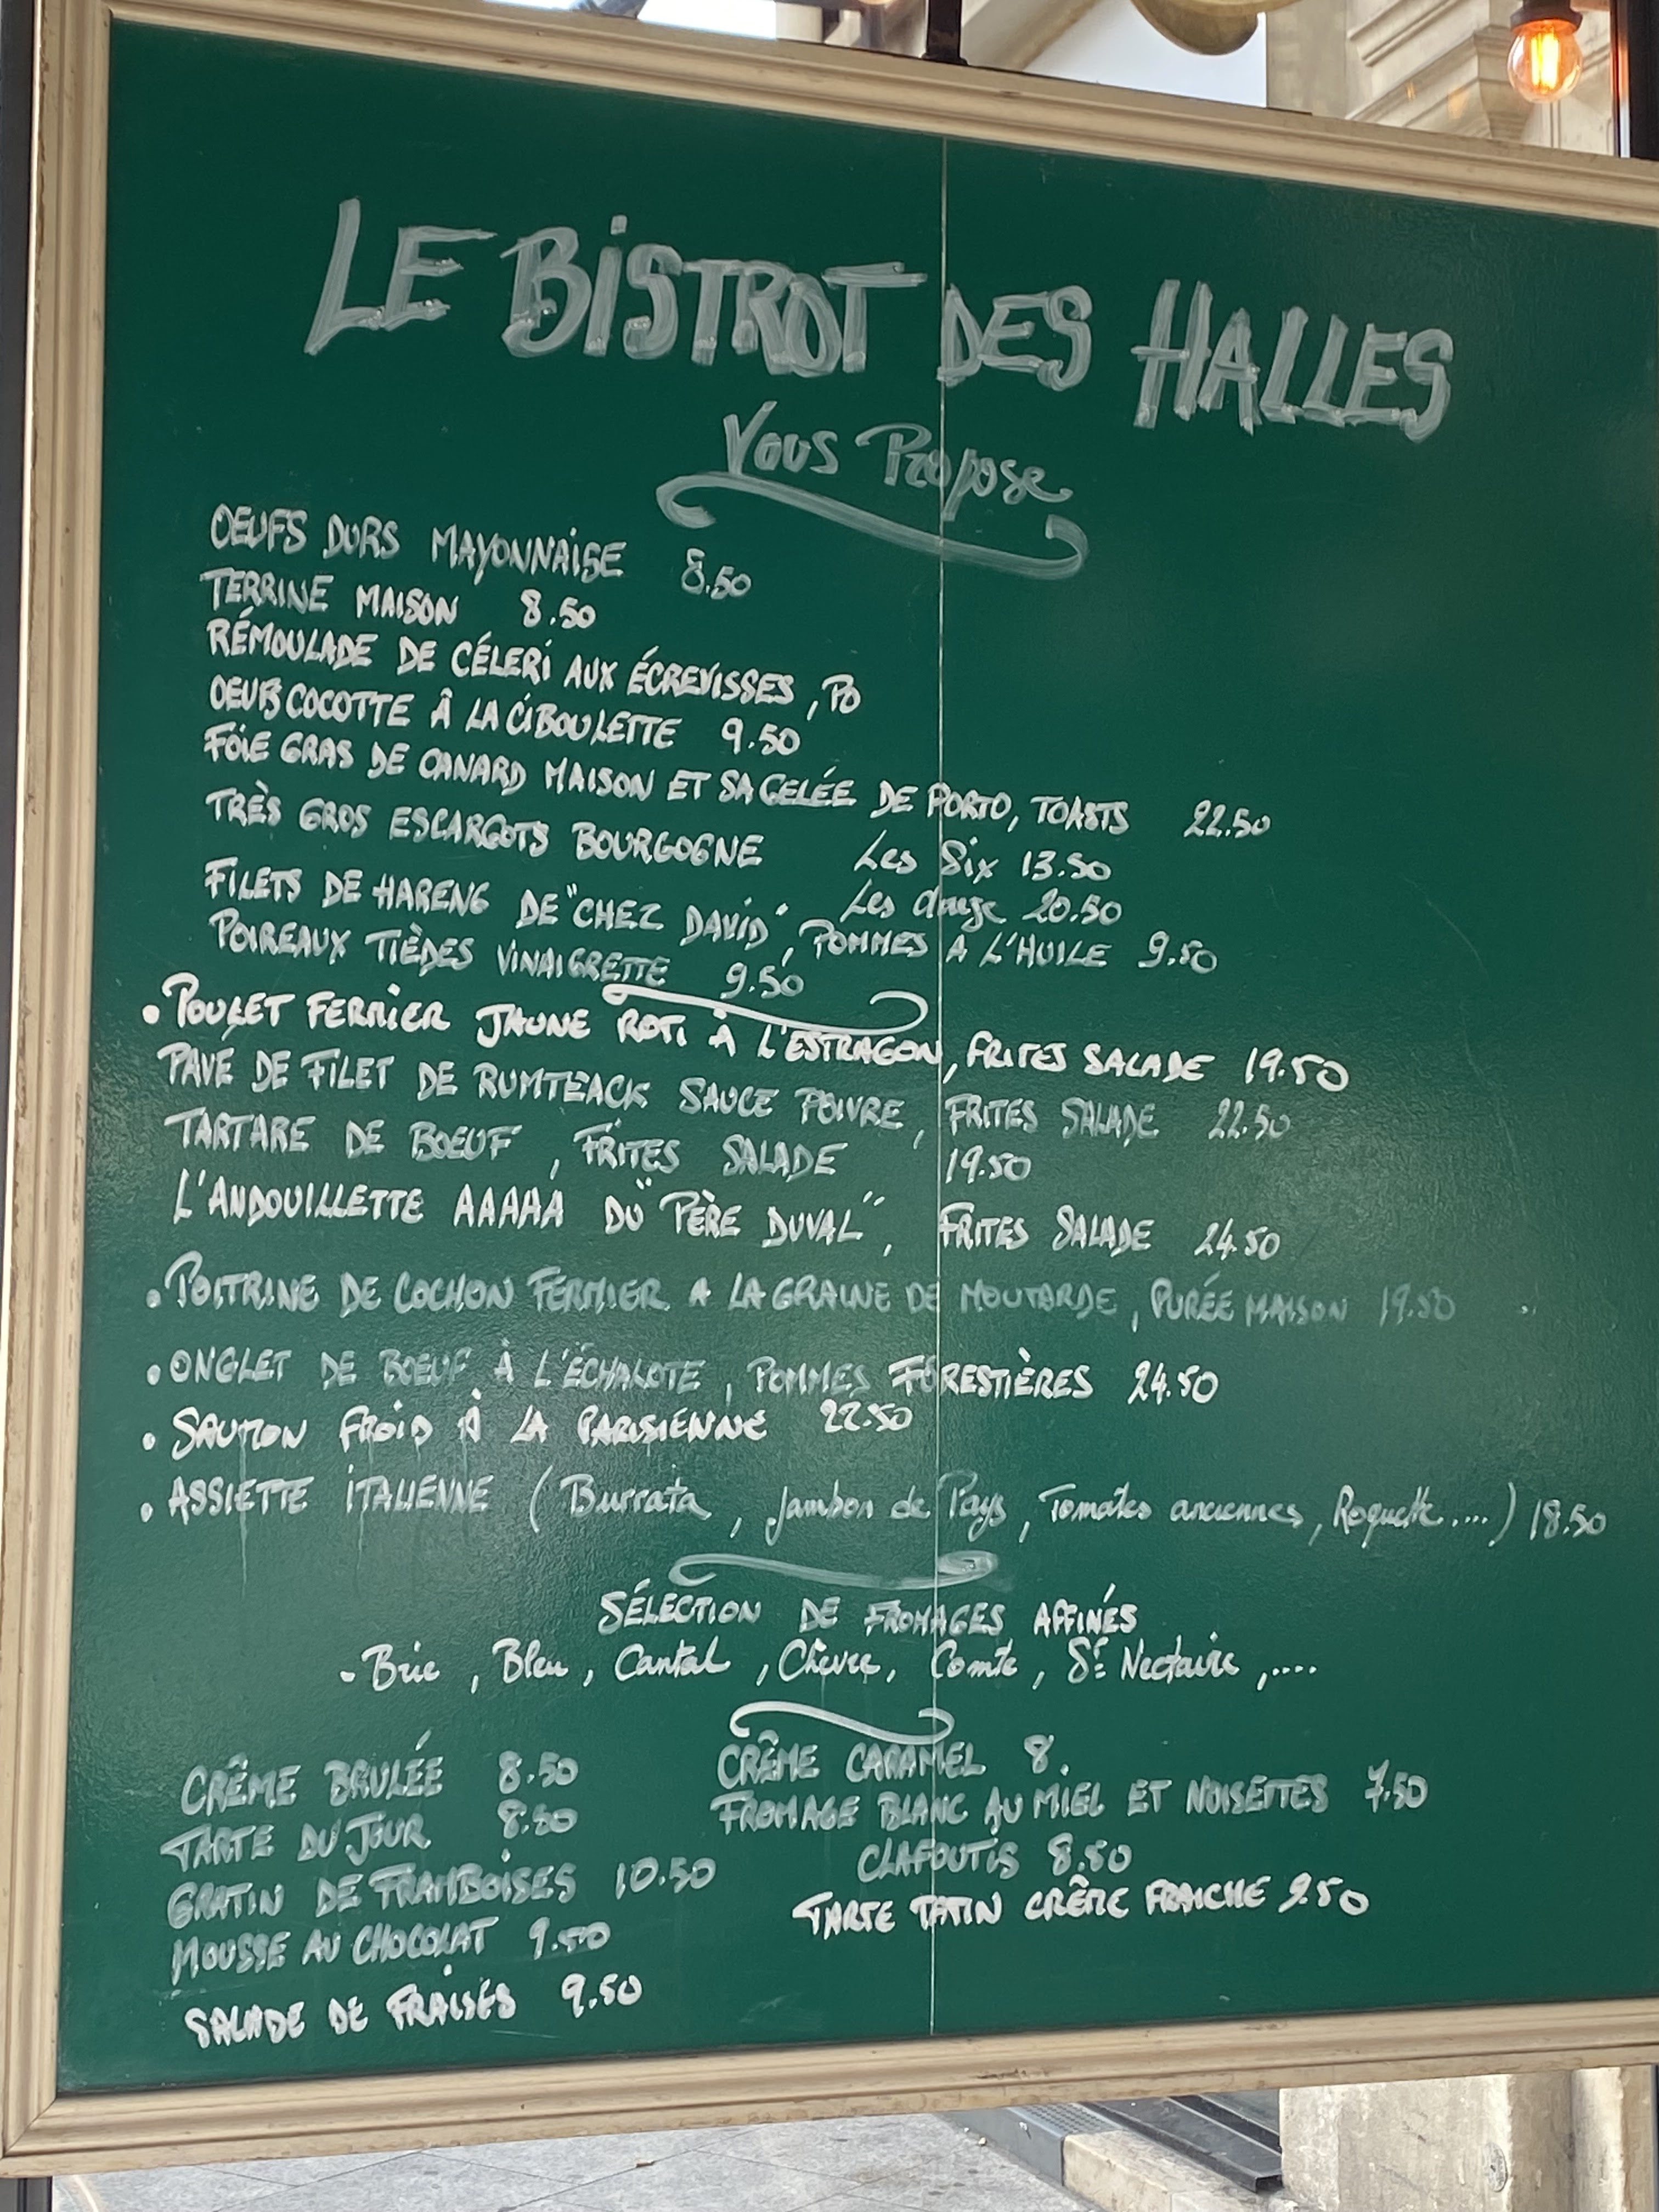 LE BISTROT DES HALLES
Vous Propose
OEUFS DURS MAYONNAISE 8.50
TERRINE MAISON 8.50
RÉMOULADE DE CÉLERI AUX ÉCREVISSES,
OEUFS COCOTTE À LA CIBOULETTE 9.50
FOIE GRAS DE CANARD MAISON ET SA GELÉE DE PORTO, TOASTS 22.50
TRÈS GROS ESCARGOTS BOURGOGNE Les Six 13.50
Les douze 20.50
FILETS DE HARENG DE "CHEZ DAVID", POMMES A L'HUILE 9.50
POIREAUX TIÈDES VINAIGRETTE 9.50
• POULET FERMIER JAUNE ROTI À L'ESTRAGON, FRITES SALADE 19.50
PAVÉ DE FILET DE RUMTEACK SAUCE POIVRE, FRITES SALADE 22.50
TARTARE DE BOEUF, FRITES SALADE 19.50
L'ANDOUILLETTE AAAAA DU "PÈRE DUVAL", FRITES SALADE 24.50
• POITRINE DE COCHON FERMIER A LA GRAINE DE MOUTARDE, PURÉE MAISON 19.50
• ONGLET DE BOEUF À L'ÉCHALOTE, POMMES FORESTIÈRES 24.50
• SAUMON FROID À LA PARISIENNE 22.50
• ASSIETTE ITALIENNE (Burrata, Jambon de Pays, Tomates anciennes, Roquette....) 18.50
SÉLECTION DE FROMAGES AFFINÉS
- Brie, Bleu, Cantal, Chèvre, Comté, St Nectaire,....
CRÊME BRULÉE 8.50 CRÊME CARAMEL 8.
TARTE DU JOUR 8.50 FROMAGE BLANC AU MIEL ET NOISETTES 7.50
GRATIN DE FRAMBOISES 10.50 CLAFOUTIS 8.50
MOUSSE AU CHOCOLAT 9.50 TARTE TATIN CRÊME FRAICHE 9.50
SALADE DE FRAISES 9.50